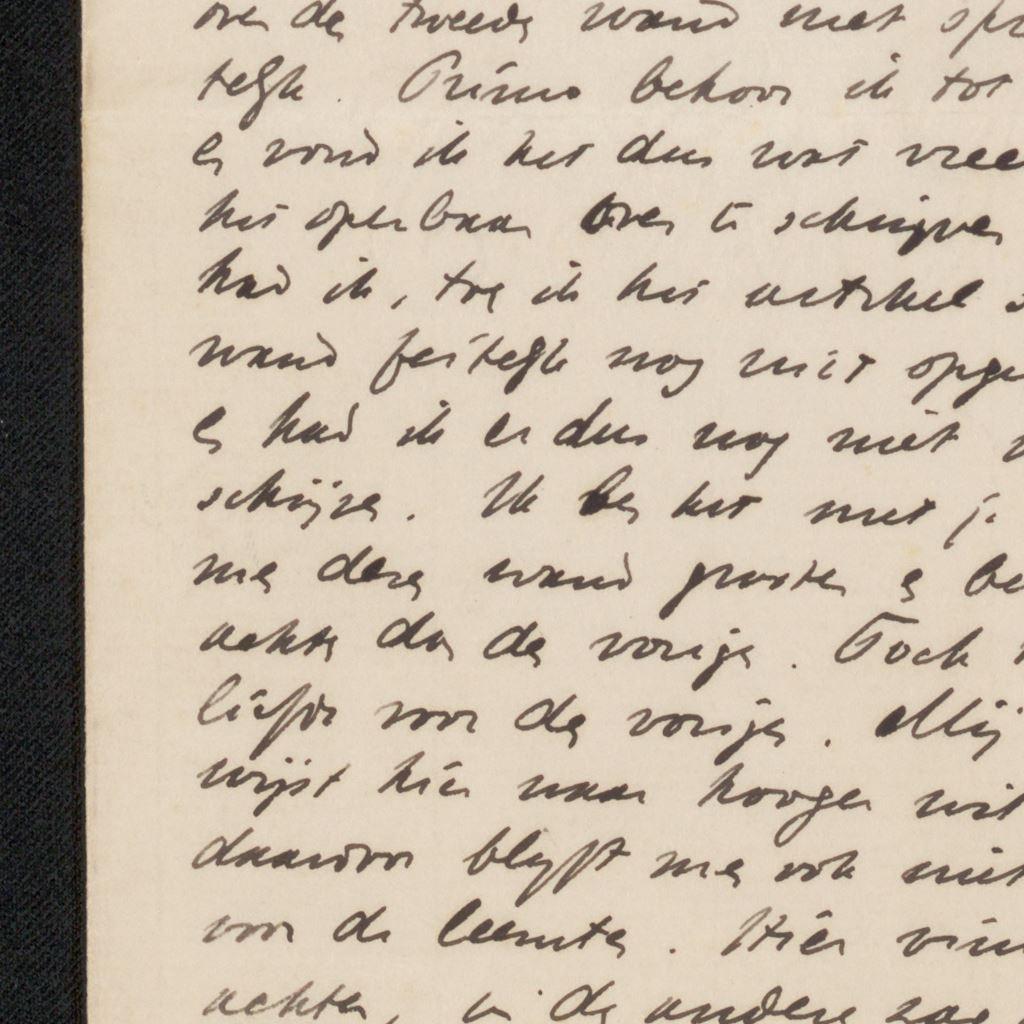 over de tweede wand niet spr
telijk. Primo behoor ik tot
en vond ik het dus wat vree
het openbaar over te schrijven
had ik, toen ik het artikel s
wand feitelijk nog niet opge
en had ik er dus nog niet
schrijven. Ik ben het met je
me deze wand grooter en be
achter dan de vorige. Toch
liefde voor de vorige. Mij
wijst hier naar hooger uit
daarvoor blijft me ook niet
voor de leemte. Hier vin
achter, in de andere zag